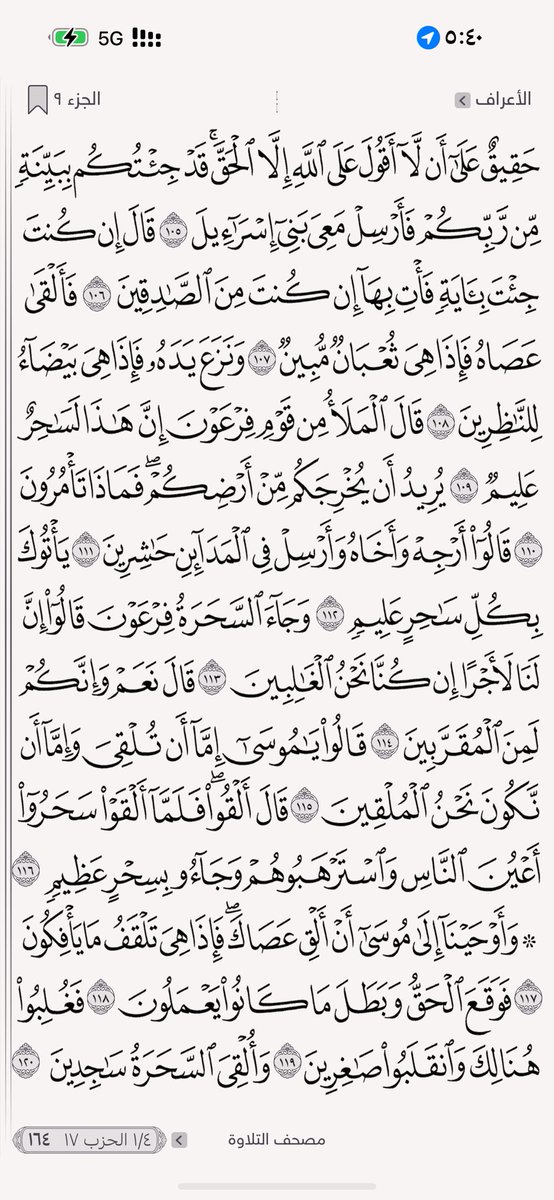 ٥:٤٠ 5G
الأعراف الجزء ٩
حَقِيقٌ عَلَىٰٓ أَن لَّآ أَقُولَ عَلَى ٱللَّهِ إِلَّا ٱلْحَقَّۚ قَدْ جِئْتُكُم بِبَيِّنَةٍ
مِّن رَّبِّكُمْ فَأَرْسِلْ مَعِىَ بَنِىٓ إِسْرَٰٓءِيلَ ١٠٥ قَالَ إِن كُنتَ
جِئْتَ بِـَٔايَةٍ فَأْتِ بِهَآ إِن كُنتَ مِنَ ٱلصَّـٰدِقِينَ ١٠٦ فَأَلْقَىٰ
عَصَاهُ فَإِذَا هِىَ ثُعْبَانٌ مُّبِينٌ ١٠٧ وَنَزَعَ يَدَهُۥ فَإِذَا هِىَ بَيْضَآءُ
لِلنَّـٰظِرِينَ ١٠٨ قَالَ ٱلْمَلَأُ مِن قَوْمِ فِرْعَوْنَ إِنَّ هَـٰذَا لَسَـٰحِرٌ
عَلِيمٌ ١٠٩ يُرِيدُ أَن يُخْرِجَكُم مِّنْ أَرْضِكُمْۖ فَمَاذَا تَأْمُرُونَ
١١٠ قَالُوٓا۟ أَرْجِهْ وَأَخَاهُ وَأَرْسِلْ فِى ٱلْمَدَآئِنِ حَـٰشِرِينَ ١١١ يَأْتُوكَ
بِكُلِّ سَـٰحِرٍ عَلِيمٍ ١١٢ وَجَآءَ ٱلسَّحَرَةُ فِرْعَوْنَ قَالُوٓا۟ إِنَّ
لَنَا لَأَجْرًا إِن كُنَّا نَحْنُ ٱلْغَـٰلِبِينَ ١١٣ قَالَ نَعَمْ وَإِنَّكُمْ
لَمِنَ ٱلْمُقَرَّبِينَ ١١٤ قَالُوا۟ يَـٰمُوسَىٰٓ إِمَّآ أَن تُلْقِىَ وَإِمَّآ أَن
نَّكُونَ نَحْنُ ٱلْمُلْقِينَ ١١٥ قَالَ أَلْقُوا۟ۖ فَلَمَّآ أَلْقَوْا۟ سَحَرُوٓا۟
أَعْيُنَ ٱلنَّاسِ وَٱسْتَرْهَبُوهُمْ وَجَآءُو بِسِحْرٍ عَظِيمٍ ١١٦
۞ وَأَوْحَيْنَآ إِلَىٰ مُوسَىٰٓ أَنْ أَلْقِ عَصَاكَۖ فَإِذَا هِىَ تَلْقَفُ مَا يَأْفِكُونَ
١١٧ فَوَقَعَ ٱلْحَقُّ وَبَطَلَ مَا كَانُوا۟ يَعْمَلُونَ ١١٨ فَغُلِبُوا۟
هُنَالِكَ وَٱنقَلَبُوا۟ صَـٰغِرِينَ ١١٩ وَأُلْقِىَ ٱلسَّحَرَةُ سَـٰجِدِينَ ١٢٠
مصحف التلاوة ١/٤ الحزب ١٧ ١٦٤